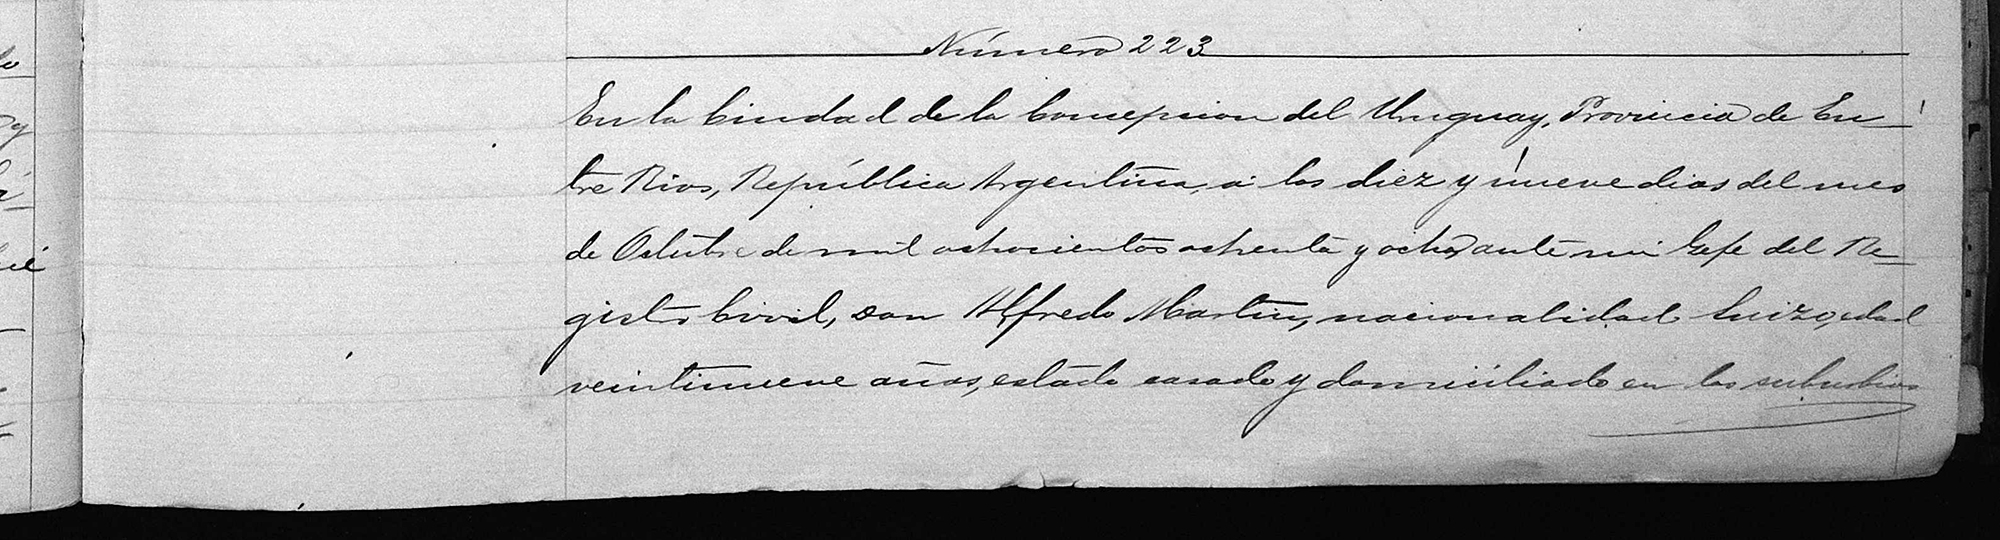 Número 223
En la Ciudad de la Concepcion del Uruguay, Provincia de En-
tre Rios, República Argentina, á los diez y nueve dias del mes
de Octubre de mil ochocientos ochenta y ocho, ante mi Gefe del Re-
gistro Civil, Don Alfredo Martin, nacionalidad Suizo, edad
veintinueve años, estado casado y domiciliado en los suburbios